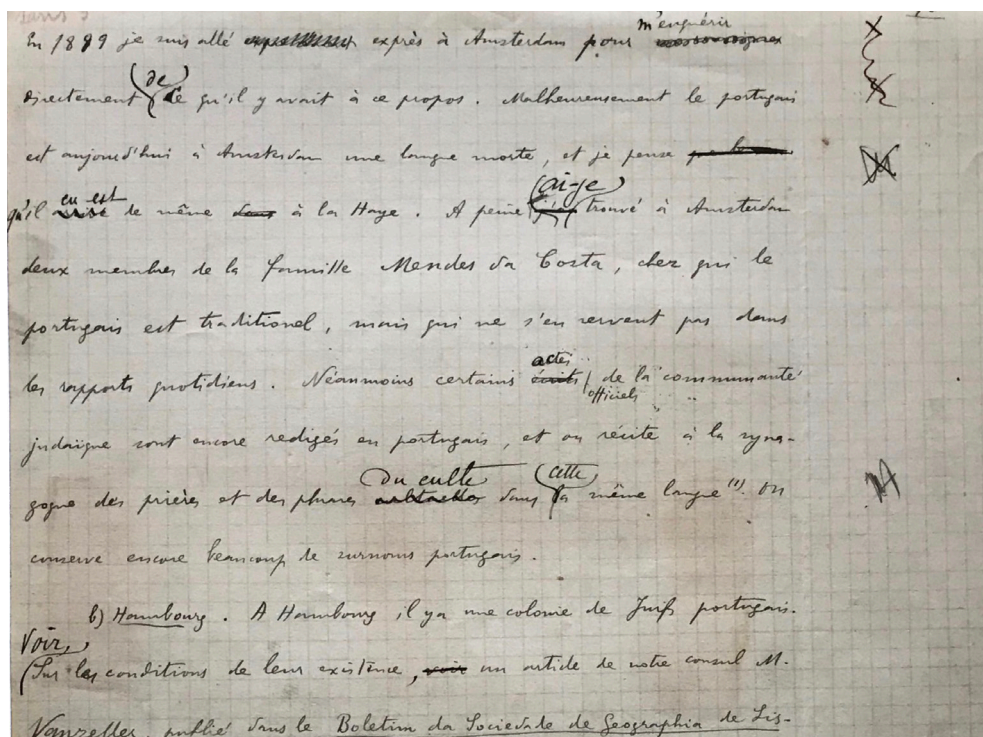 En 1889 je suis allé exprès à Amsterdam pour m'enquérir
directement de ce qu'il y avait à ce propos. Malheureusement le portugais
est aujourd'hui à Amsterdam une langue morte, et je pense
qu'il en est de même dans à la Haye. A peine ai-je trouvé à Amsterdam
deux membres de la famille Mendes da Costa, chez qui le
portugais est traditionel, mais qui ne s'en servent pas dans
les rapports quotidiens. Néanmoins certains écrits actes officiels de la communauté
judaïque sont encore redigés en portugais, et on récite à la syna-
gogue des prières et des phrases du culte dans cette la même langue (1). On
conserve encore beaucoup de surnoms portugais.
b) Hambourg. A Hambourg il y a une colonie de Juifs portugais.
Voir,
(Sur les conditions de leur existence, voir un article de notre consul M.
Vanzelles, publié dans le Boletim da Sociedade de Geographia de Lis-